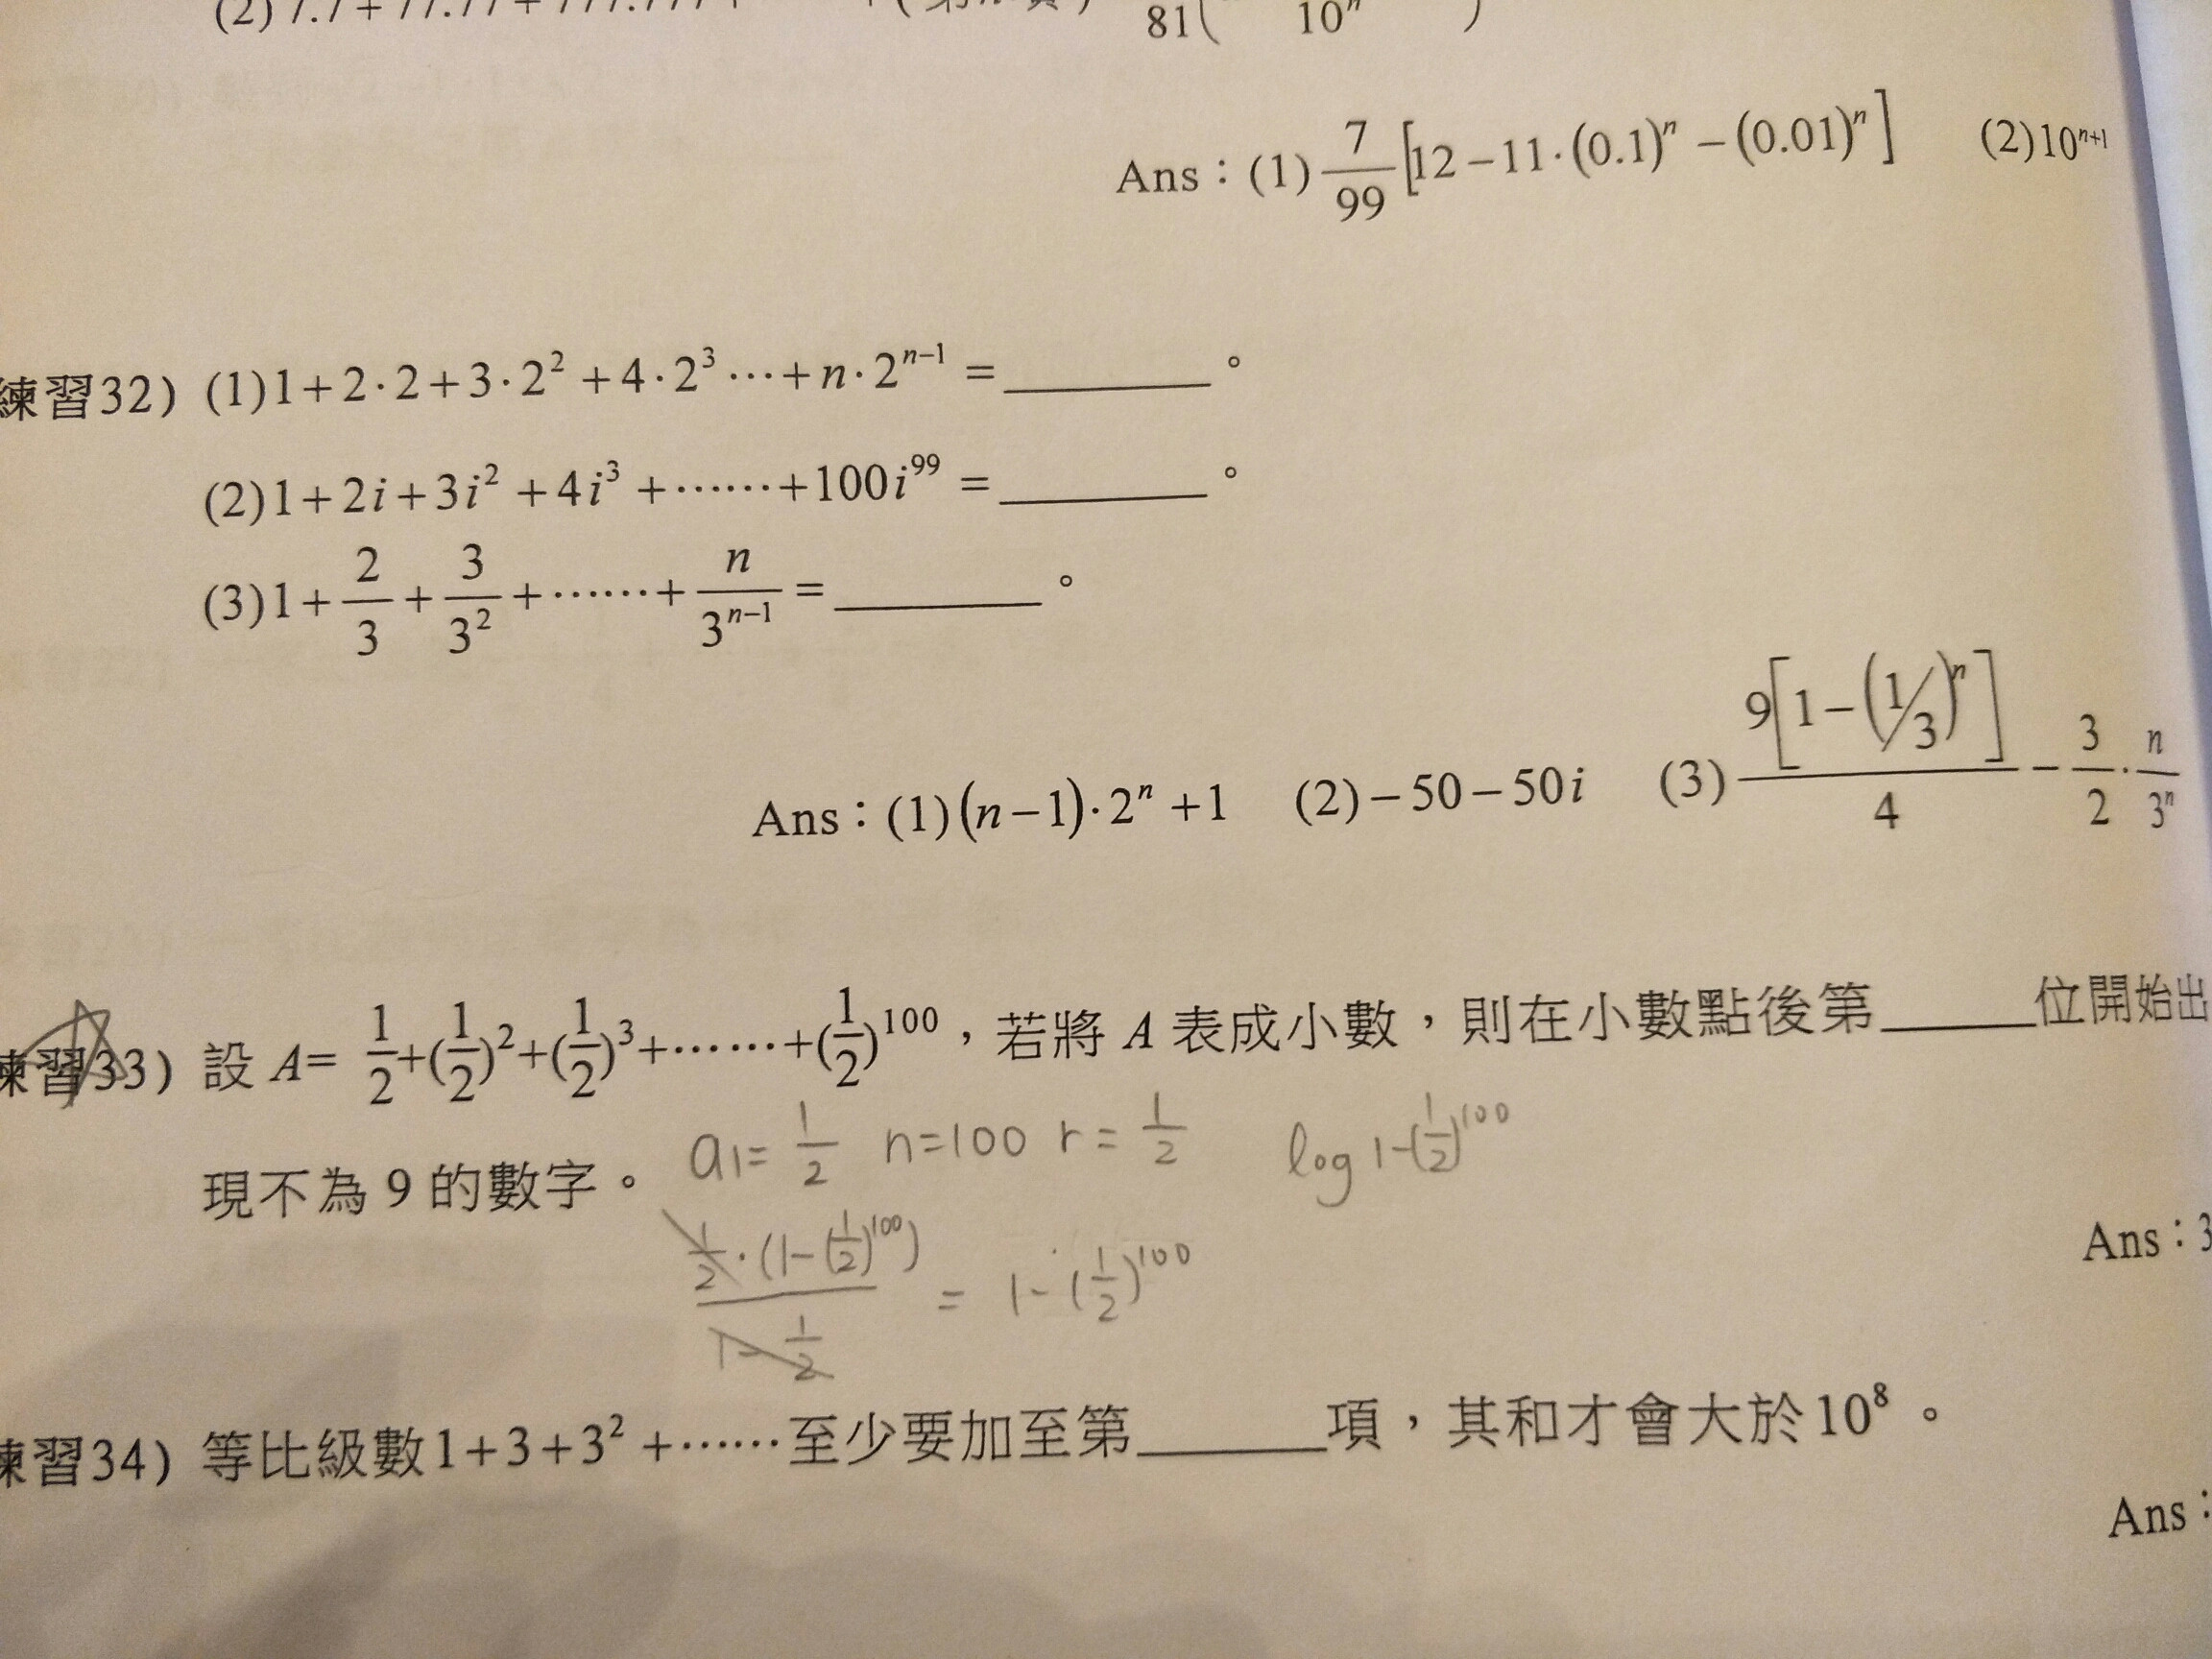 (2) 7.7 + 77.77 + 777.777 + 81( 10ⁿ )
Ans：(1) 7/99 [12 − 11·(0.1)ⁿ − (0.01)ⁿ] (2) 10ⁿ⁺¹
練習32) (1) 1 + 2·2 + 3·2² + 4·2³ ⋯ + n·2ⁿ⁻¹ = ______。
(2) 1 + 2i + 3i² + 4i³ + ⋯⋯ + 100i⁹⁹ = ______。
(3) 1 + 2/3 + 3/3² + ⋯⋯ + n/3ⁿ⁻¹ = ______。
Ans：(1) (n−1)·2ⁿ + 1 (2) −50 − 50i (3) 9[1 − (1/3)ⁿ]/4 − 3/2 · n/3ⁿ
練習33) 設 A= 1/2+(1/2)²+(1/2)³+⋯⋯+(1/2)¹⁰⁰，若將 A 表成小數，則在小數點後第______位開始出
現不為 9 的數字。 a₁= 1/2 n=100 r= 1/2 log 1−(1/2)¹⁰⁰
Ans：3
1/2·(1−(1/2)¹⁰⁰) / 1−1/2 = 1−(1/2)¹⁰⁰
練習34) 等比級數1+3+3²+⋯⋯至少要加至第______項，其和才會大於10⁸。
Ans：